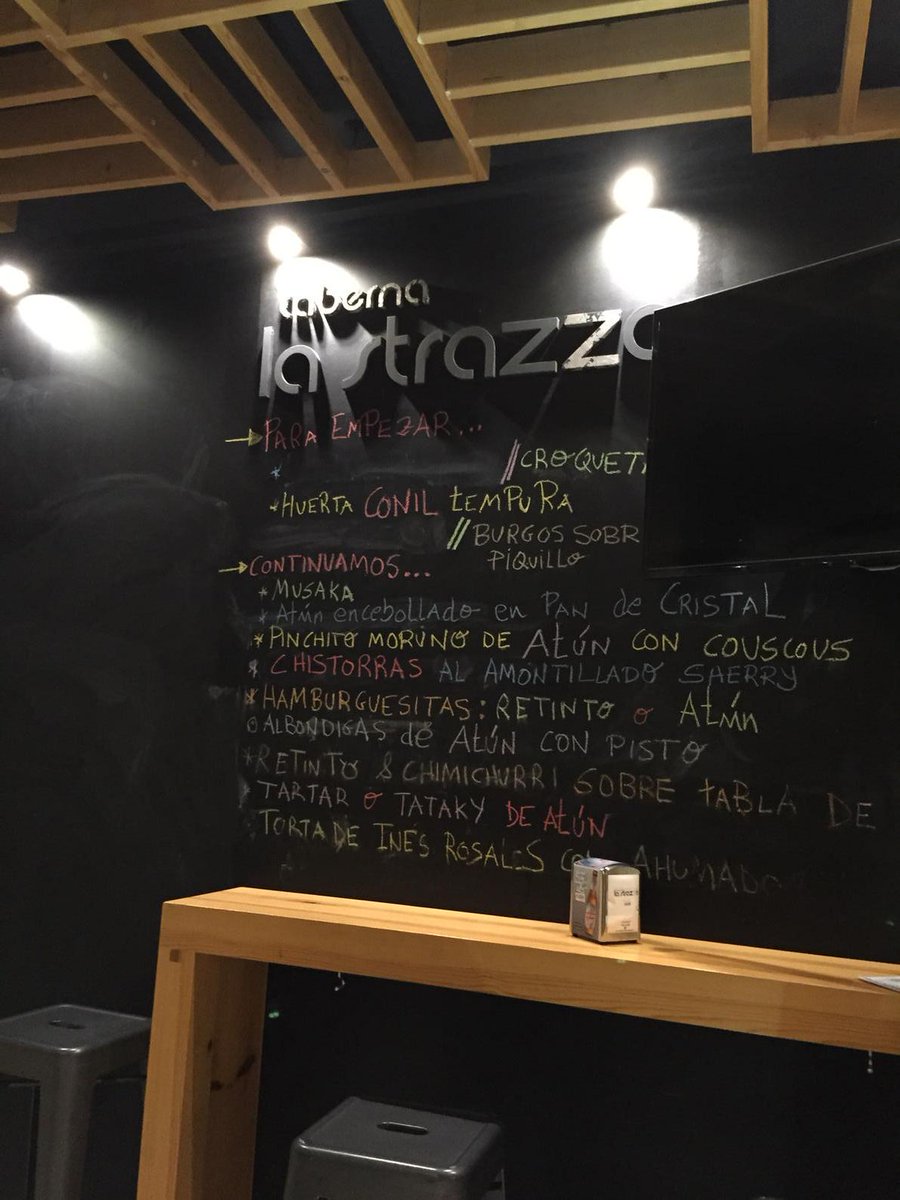 taberna
la strazza
PARA EMPEZAR...
// CROQUET
* HUERTA CONIL TEMPURA
// BURGOS SOBR
PIQUILLO
CONTINUAMOS...
* MUSAKA
* Atún encebollado en PAN de CRISTAL
* PINCHITO MORUNO DE AtÚN CON COUSCOUS
* CHISTORRAS AL AMONTILLADO SHERRY
* HAMBURGUESITAS: RETINTO o Atún
o ALBONDIGAS de AtÚN CON PISTO
* RETINTO & CHIMICHURRI SOBRE tABLA DE
TARTAR o TATAKY DE AtÚN
TORTA DE INÉS ROSALES AHUMADO